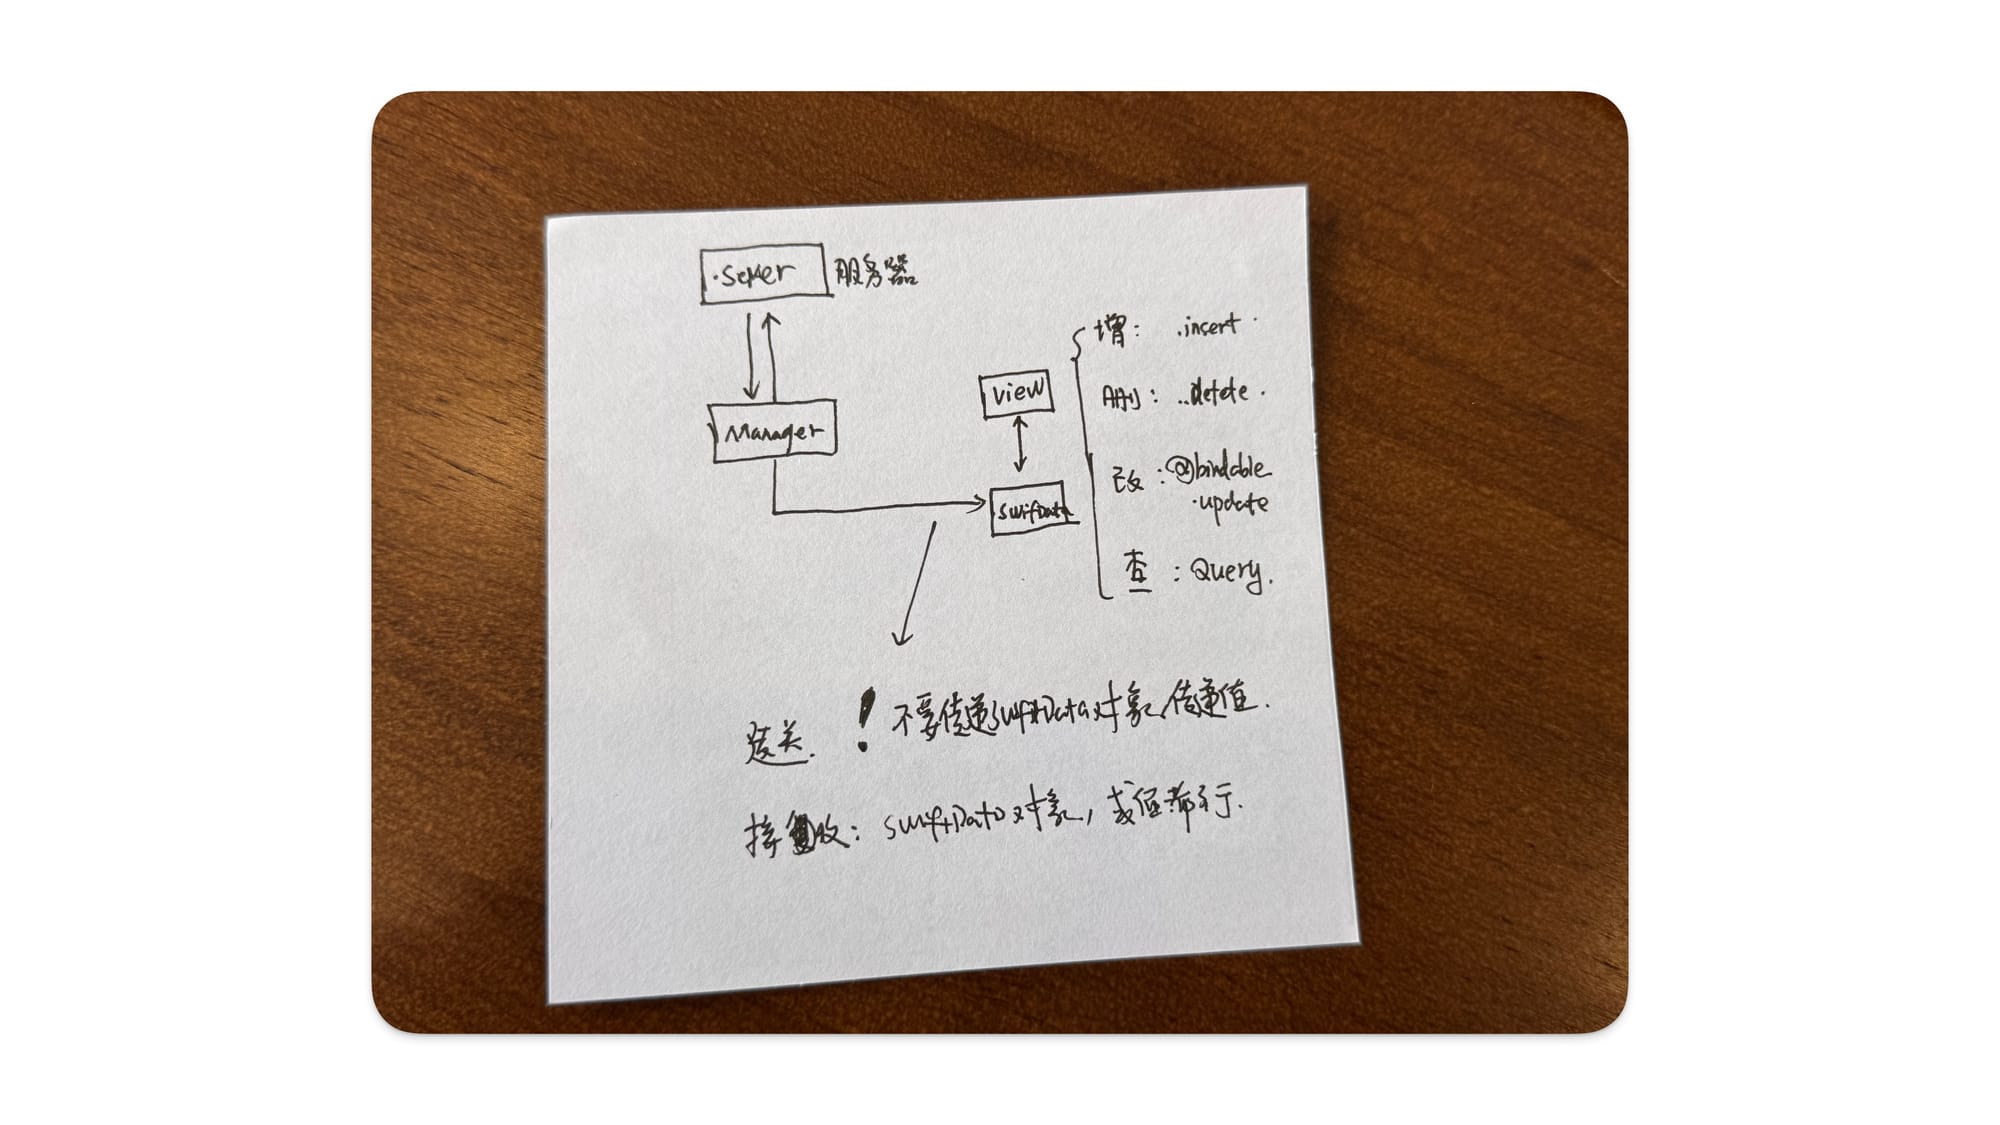 .Server 服务器
Manager
View
SwifData
增： .insert.
删： ..delete.
改：@bindable
.update
查：Query.
发送. ! 不要传递SwiftData对象,传递值.
接收：SwiftData对象，或值都行.